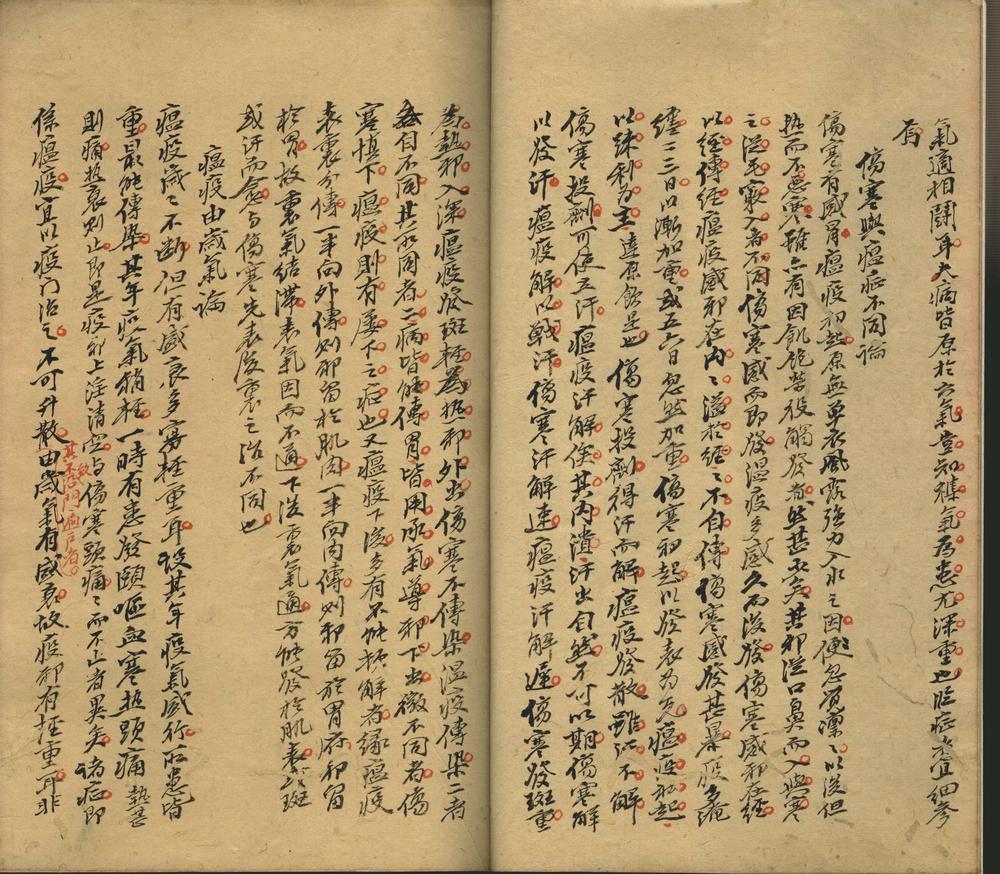 氣適相鬪耳大病皆原於六氣豈知襍氣為患尤深重也臨症宜細參
有
傷寒與瘟症不同論
傷寒有感冐瘟疫初起原無單衣風露強力入水之因便忽覺凛〻以後但
热而不惡寒雖亦有因飢飽勞役觸發者然甚少矣其邪從口鼻而入與寒
之從毛竅入者不同傷寒感而即發温疫多感久而後發傷寒感邪在經
以經傳經瘟疫感邪在內〻溢於經〻不自傳傷寒感發甚暴疫多淹
纏二三日以漸加重或五六日忽然加重傷寒初起以發表為先瘟疫初起
以疎利為主達原飲是也傷寒投劑得汗而解瘟疫發散雖汗不解
傷寒投劑可使立汗瘟疫汗解俟其內潰汗出自然不可以期傷寒解
以發汗瘟疫解以戰汗傷寒汗解速瘟疫汗解遲傷寒發斑重
為熱邪入深瘟疫發斑輕為热邪外出傷寒不傳染温疫傳染二者
各自不同其所同者二病皆能傳胃皆用承氣導邪下出微不同者傷
寒慎下瘟疫則有屡下之症也又瘟疫下後多有不能頓解者緣瘟疫
表裏分傳一半向外傳則邪留於肌肉一半向內傳則邪留於胃府邪留
於胃故裏氣結滯表氣因而不通下後裏氣通方能發於肌表或斑
或汗而愈与傷寒先表後裏之治不同也
瘟疫由歲氣論
瘟疫歲〻不断但有盛衰多寡輕重耳設其年疫氣盛行所患皆
重最能傳染其年疫氣稍輕一時有患發頤嘔血寒热頭痛热甚
則痛热衰則止即是疫邪上淫清空与傷寒頭痛〻而不止者異矣諸症即
係瘟疫宜以疫門治之不可升散由歲氣有盛衰故疫邪有輕重耳非
門通戶者